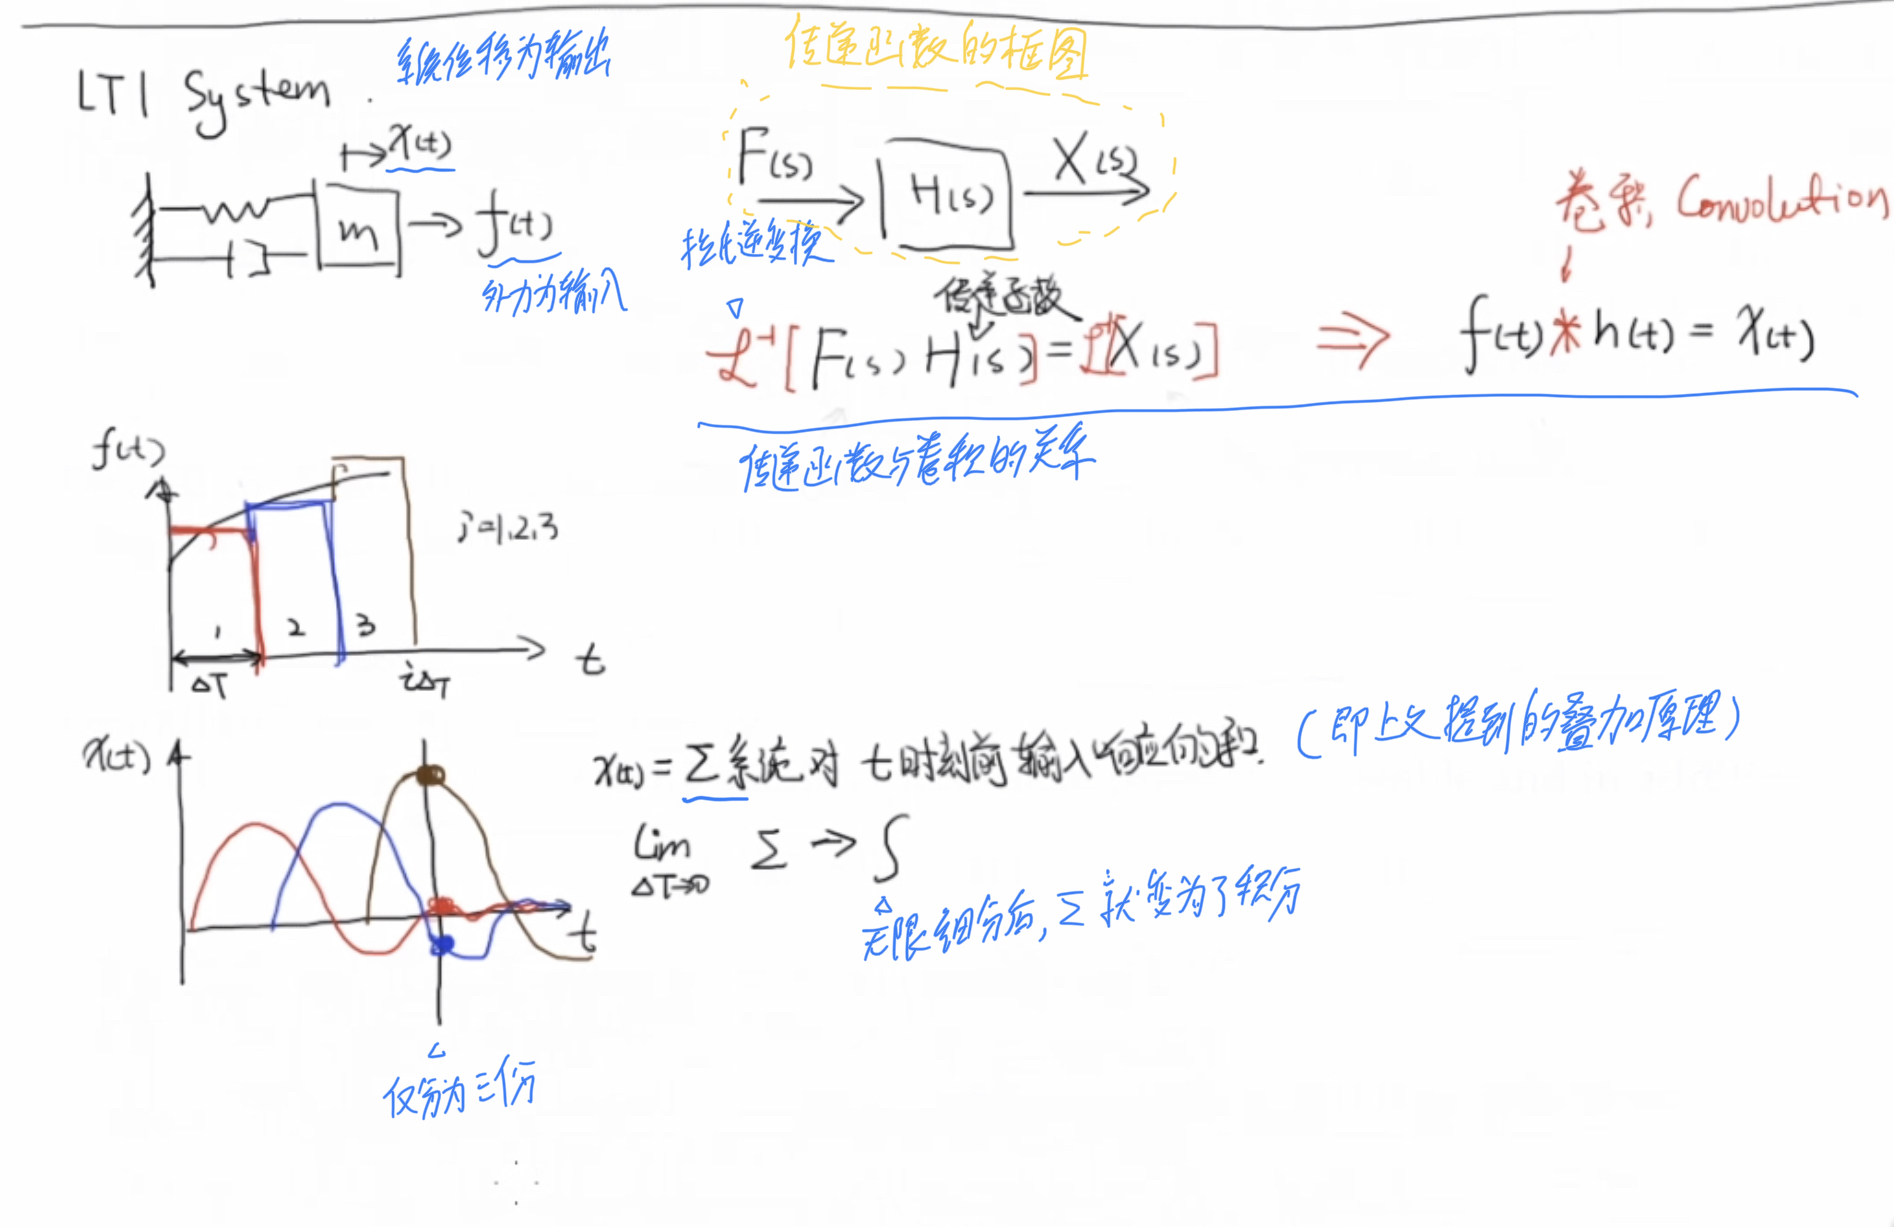 LTI System.
系统位移为输出
x(t)
m
f(t)
外力为输入
传递函数的框图
F(s)
H(s)
X(s)
拉氏逆变换
传递函数
ℒ⁻¹[F(s) H(s)] = ℒ⁻¹[X(s)]
⇒
卷积, Convolution
f(t) * h(t) = x(t)
传递函数与卷积的关系
f(t)
i=1,2,3
1 2 3
ΔT
iΔT
t
x(t)
t
仅分为三份
x(t) = Σ系统对 t时刻前输入响应的和.
(即上文提到的叠加原理)
Lim Σ → ∫
ΔT→0
无限细分后, Σ就变为了积分